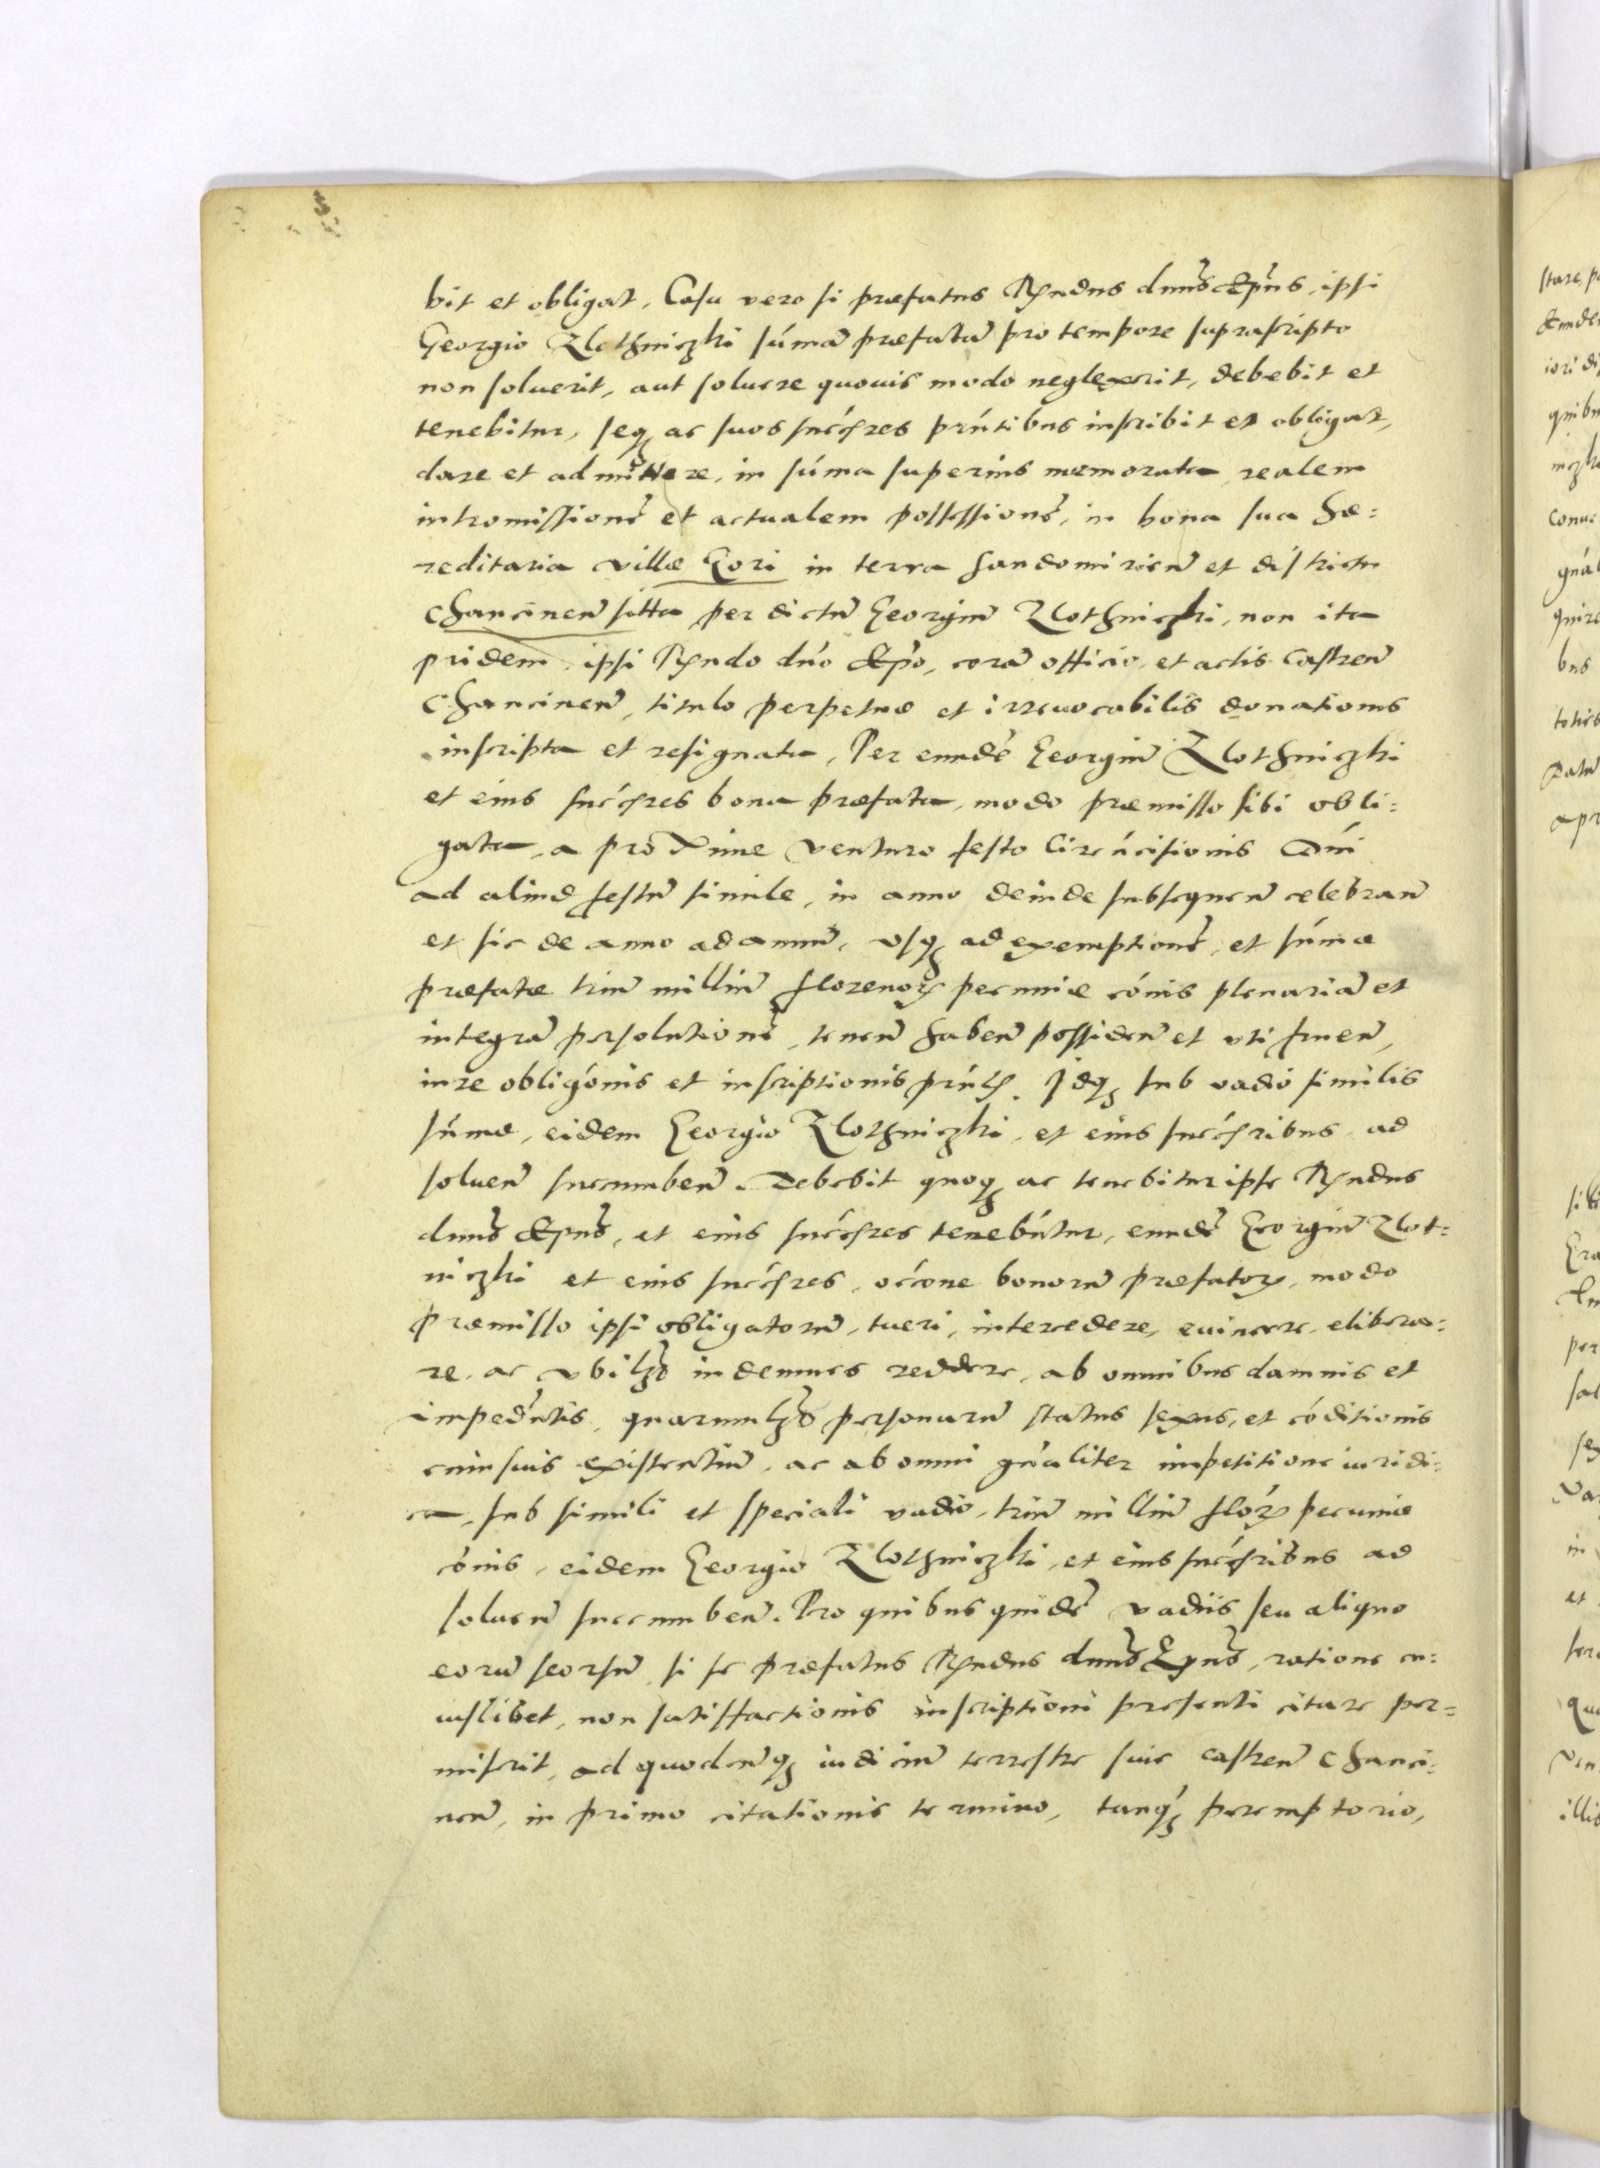 bit et obligat. Casu vero si præfatus Rṽndus dnũs Ep̃us, ipsi
Georgio Zlothniczki sũmã præfatã pro tempore suprascripto
non soluerit, aut soluere quouis modo neglexerit, debebit et
tenebitur, seq₃ ac suos succ̃sres prñtibus inscribit et obligat,
dare et admittere, in sũma superius memorata, realem
intromissionẽ et actualem possessionẽ, in bona sua hæ=
reditaria villæ Gori in terra sandomirieñ et districtu
Chancineñ sitta per dictũ Georgiũ Zlothniczki, non ita
pridem, ipsi Rṽndo dño Ep̃o, corã officio et actis Castreñ
Chancineñ, titulo perpetuæ et irreuocabilis donationis
inscripta et resignata, Per eundẽ Georgiũ Zlothniczki
et eius succ̃sres bona præfata, modo præmisso sibi obli=
gata, a proxime venturo festo Circũcisionis Dñi
ad aliud festũ simile, in anno deinde subsequeñ celebrañ
et sic de anno ad annũ, vsq₃ ad exemptionẽ, et sũmæ
præfatæ triũ milliũ florenoꝝ pecuniæ cõmis plenariã et
integrã persolutionẽ, teneñ habeñ possideñ et vti frueñ,
iure obligõnis et inscriptionis prñtꝭ. Idq₃ sub vadio similis
sũmæ, eidem Georgio Zlothniczki, et eius succ̃sribus ad
solueñ succumbeñ. Debebit quoq₃ ac tenebitur ipse Rṽndus
dnũs Ep̃us, et eius succ̃sres tenebũtur, eundẽ Georgiũ Zlot=
niczki et eius succ̃sres, occõne bonorũ præfatoꝝ, modo
præmisso ipsi obligatorũ, tueri, intercedere, euincere, elibera=
re, ac vbilꝫ indemnes reddere, ab omnibus damnis et
impedm̃tis, quarumlꝫ personarũ status sexus, et cõditionis
cuiusuis existentiũ, ac ab omni gñaliter impetitione iuridi=
ca, sub simili et speciali vadio, triũ milliũ floꝝ pecuniæ
cõmis, eidem Georgio Zlothniczki, et eius succ̃sribus ad
solueñ succumbeñ. Pro quibus quidẽ vadiis seu aliquo
eorũ seorsũ, si se præfatus Rṽndus dnũs Ep̃us, ratione cu=
iuslibet, non satisfactionis inscriptioni presenti citare per=
miserit, ad quodcunq₃ iudiciũ terrestre siue castreñ Chanci=
neñ, in primo citationis termino, tanq̃₃ peremptorio,